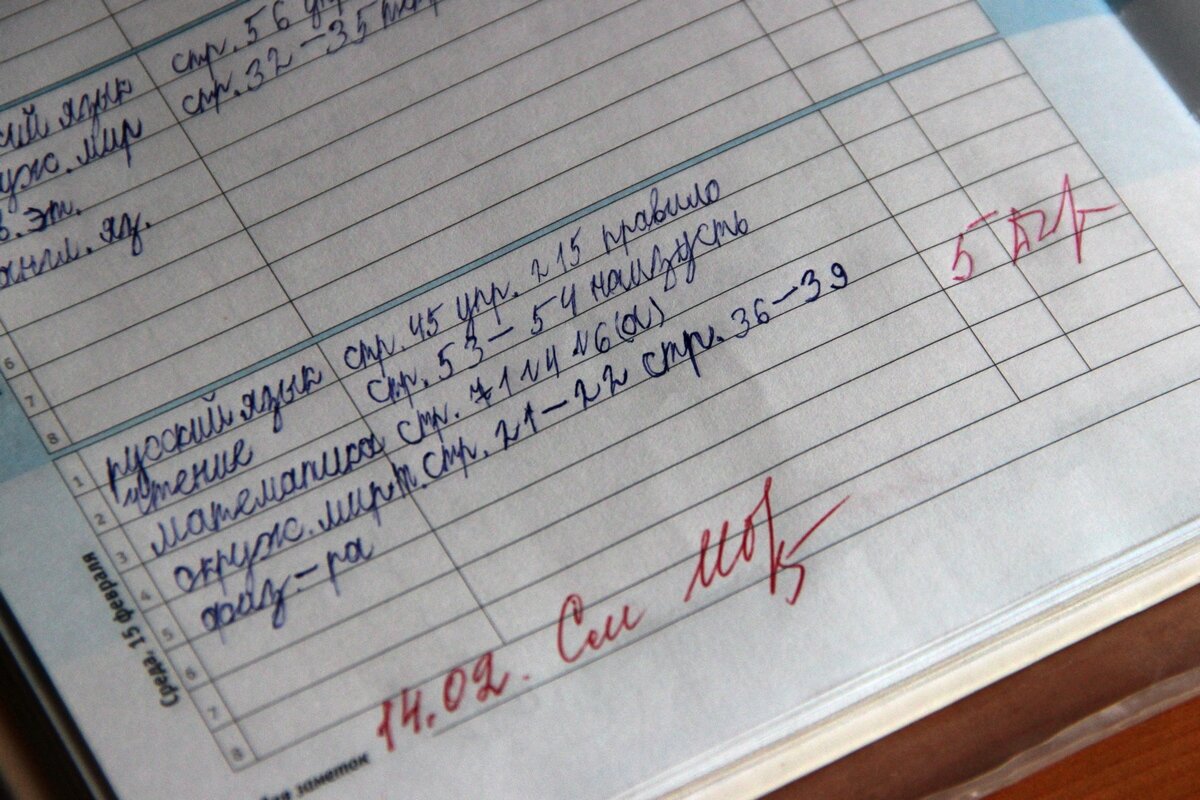 стр. 56 упр
ский язык стр. 32-35 
уж. мир
в. эт.
англ. яз.
6
7
8
Среда, 15 февраля
1 русский язык стр. 45 упр. 215 правило
2 чтение стр. 53-54 наизусть
3 математика стр. 71 №4 №6(а)
4 окруж. мир т. стр. 21-22 стр. 36-39
5 физ-ра
6
7
8
5
14.02. См
для заметок